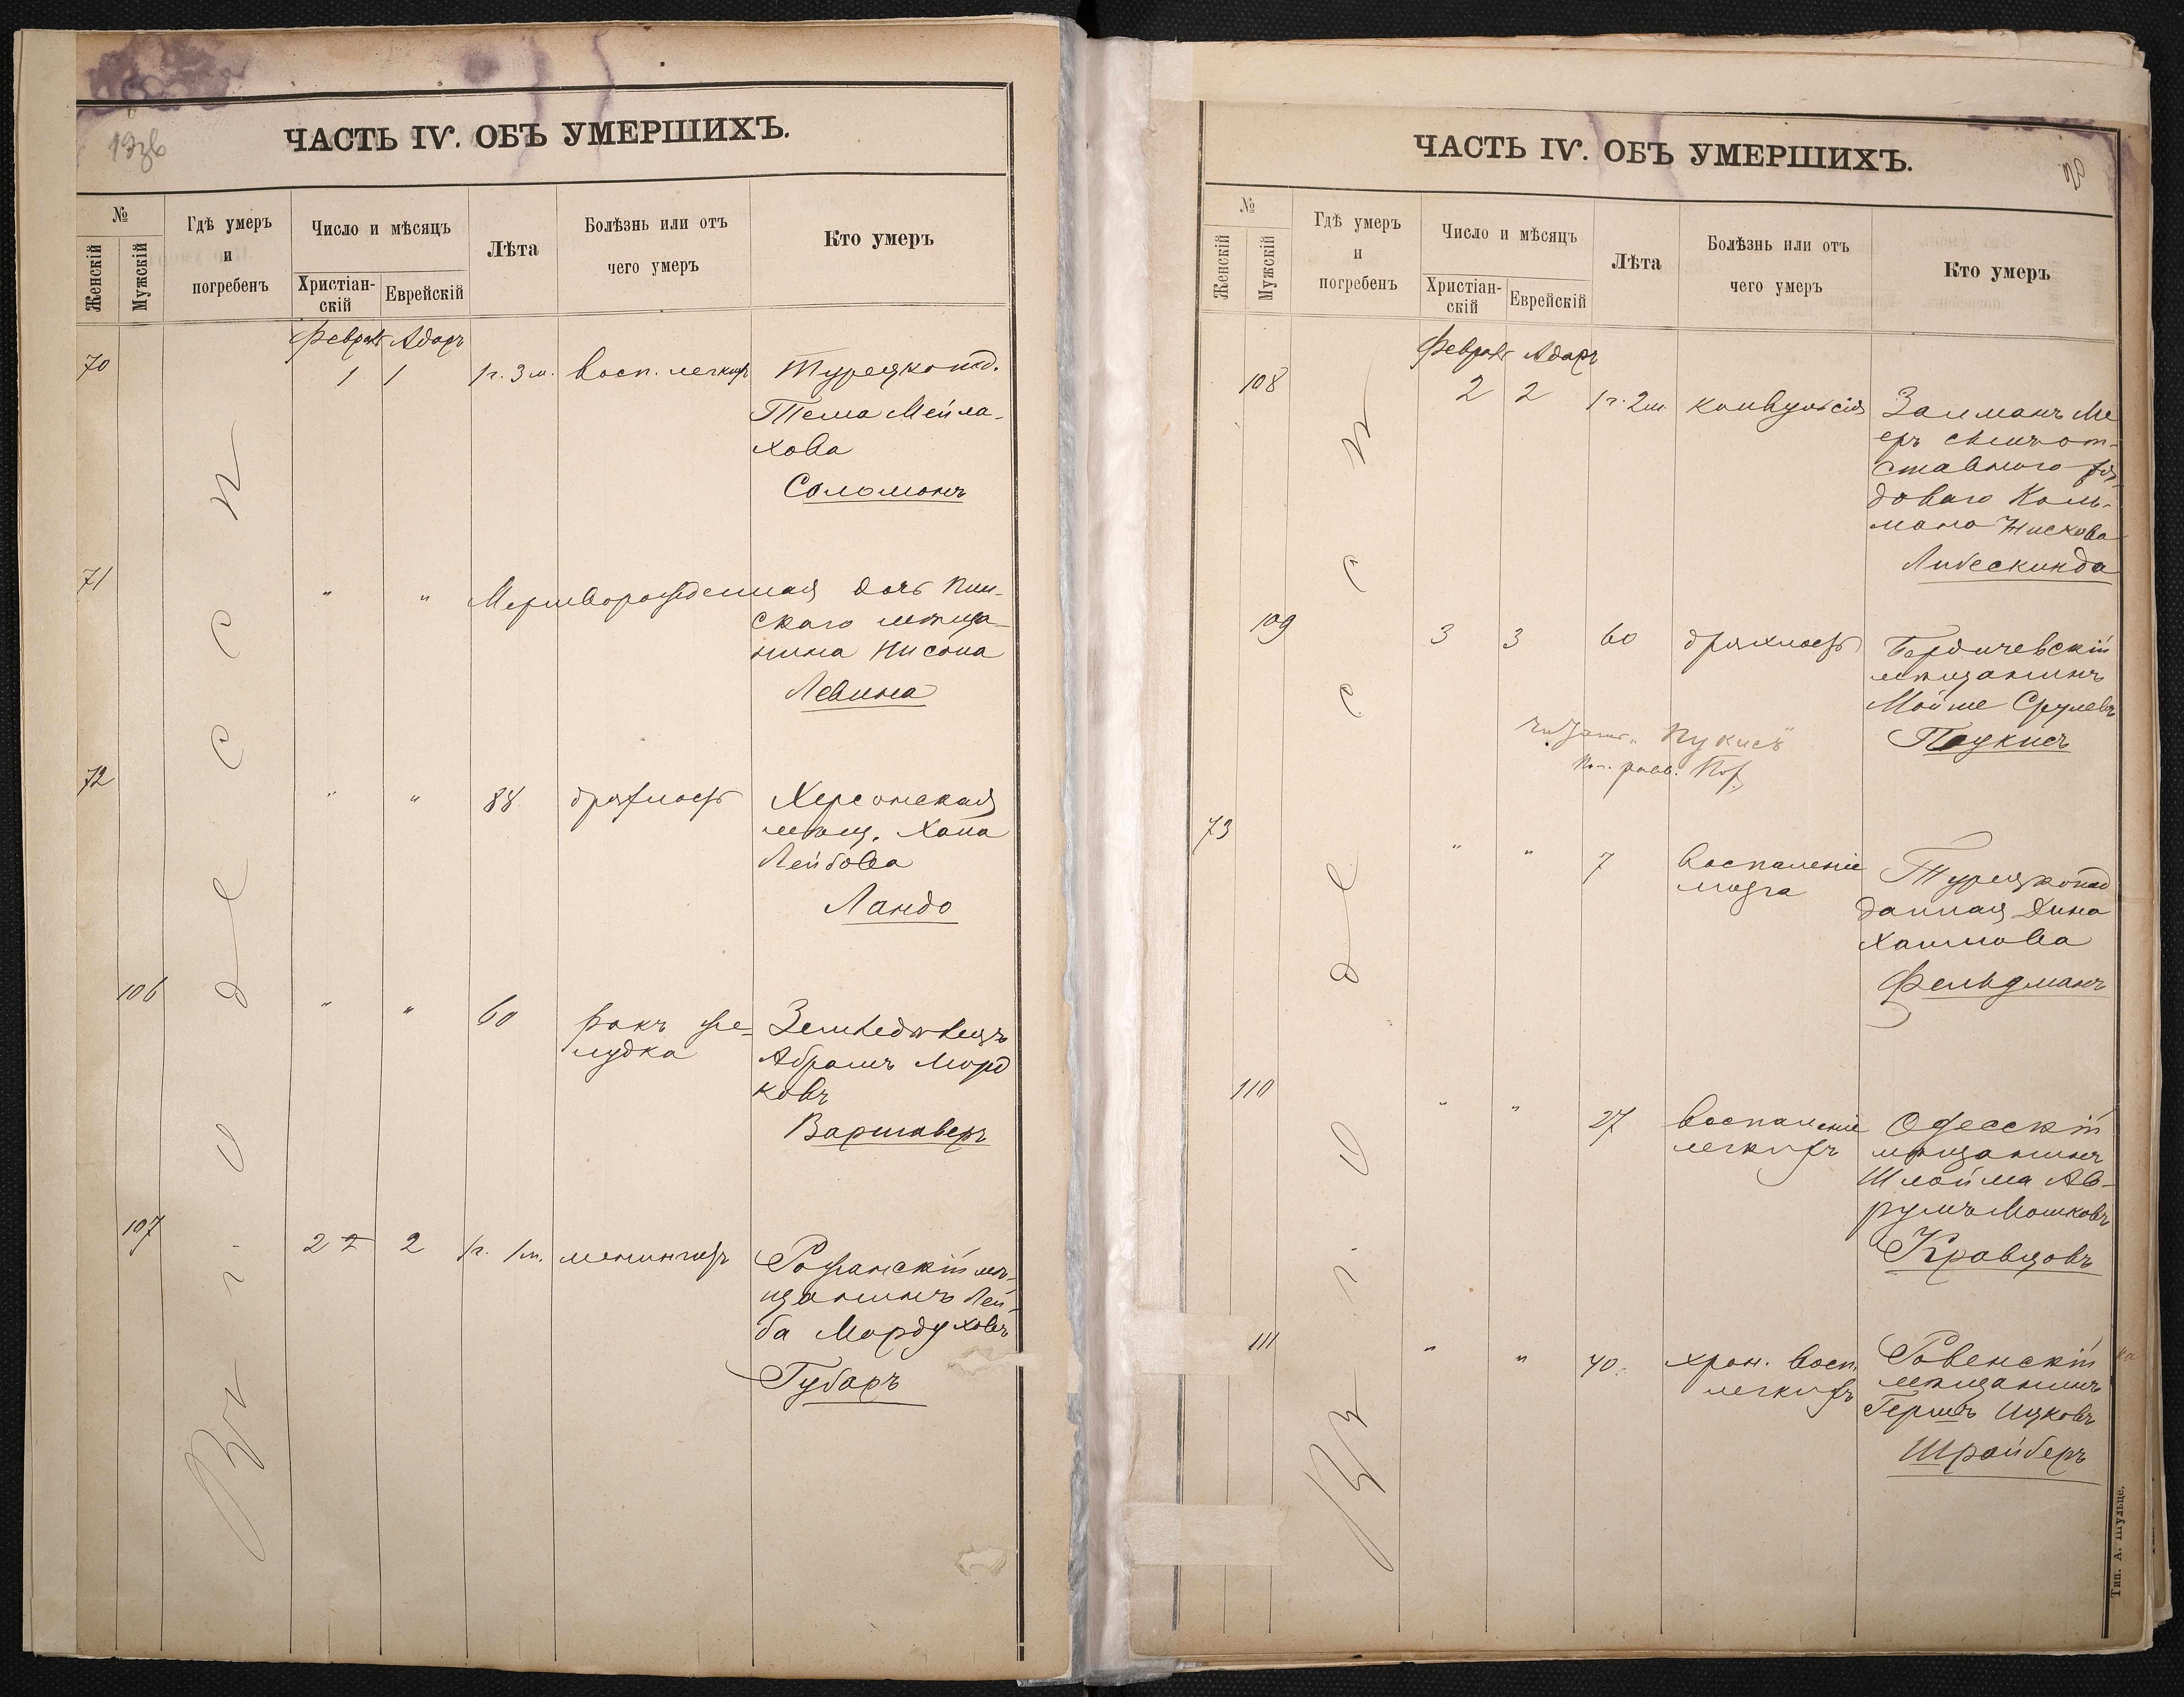 ЧАСТЬ IV. ОБЪ УМЕРШИХЪ.
№
Женскій
Мужскій
Гдѣ умеръ
и
погребенъ
Число и мѣсяцъ
Христіан-
скій
Еврейскій
Лѣта
Болѣзнь или отъ
чего умеръ
Кто умеръ
Въ г. Одессѣ
Февраль Адаръ
70 1 1 1 г. 3 м. Восп. легкихъ Турецкопод.
Тема Мейла-
хова
Соломонъ
71 " " Мертворожденная дочь Пин-
скаго мѣща-
нина Нисона
Левина
72 " " 88 дряхлость Херсонская
мѣщ. Хана
Лейбова
Ландо
106 " " 60 ракъ же- Земледѣлецъ
лудка Абрамъ Морд
ковъ
Варшаверъ
107 2 2 2 1 г. 1 м. менингитъ Рожанскій мѣ-
щанинъ Лей-
ба Мордуховъ
Губаръ
ЧАСТЬ IV. ОБЪ УМЕРШИХЪ.
20
№
Женскій
Мужскій
Гдѣ умеръ
и
погребенъ
Число и мѣсяцъ
Христіан-
скій
Еврейскій
Лѣта
Болѣзнь или отъ
чего умеръ
Кто умеръ
Въ г. Одессѣ
Февраль Адаръ
108 2 2 1 г. 2 м. конвульсія Залманъ Ме
еръ сынъ от-
ставного ря-
доваго Каль-
мана
Либескинда
109 3 3 60 дряхлость Бердичевскій
мѣщанинъ
Мойше Срулевъ
Пукисъ
"Пукисъ"
73 " " 7 Воспаленіе Турецкопод
мозга данная Дина
Хаимова
Фельдманъ
110 " " 27 Воспаленіе Одесскій
легкихъ мѣщанинъ
Шлойма Ав-
румъ Мошковъ
Кравцовъ
111 " " 40 хрон. восп. Ровенскій
легкихъ мѣщанинъ
Гершъ Ицковъ
Шрайберъ
Тип. А. Шульце.